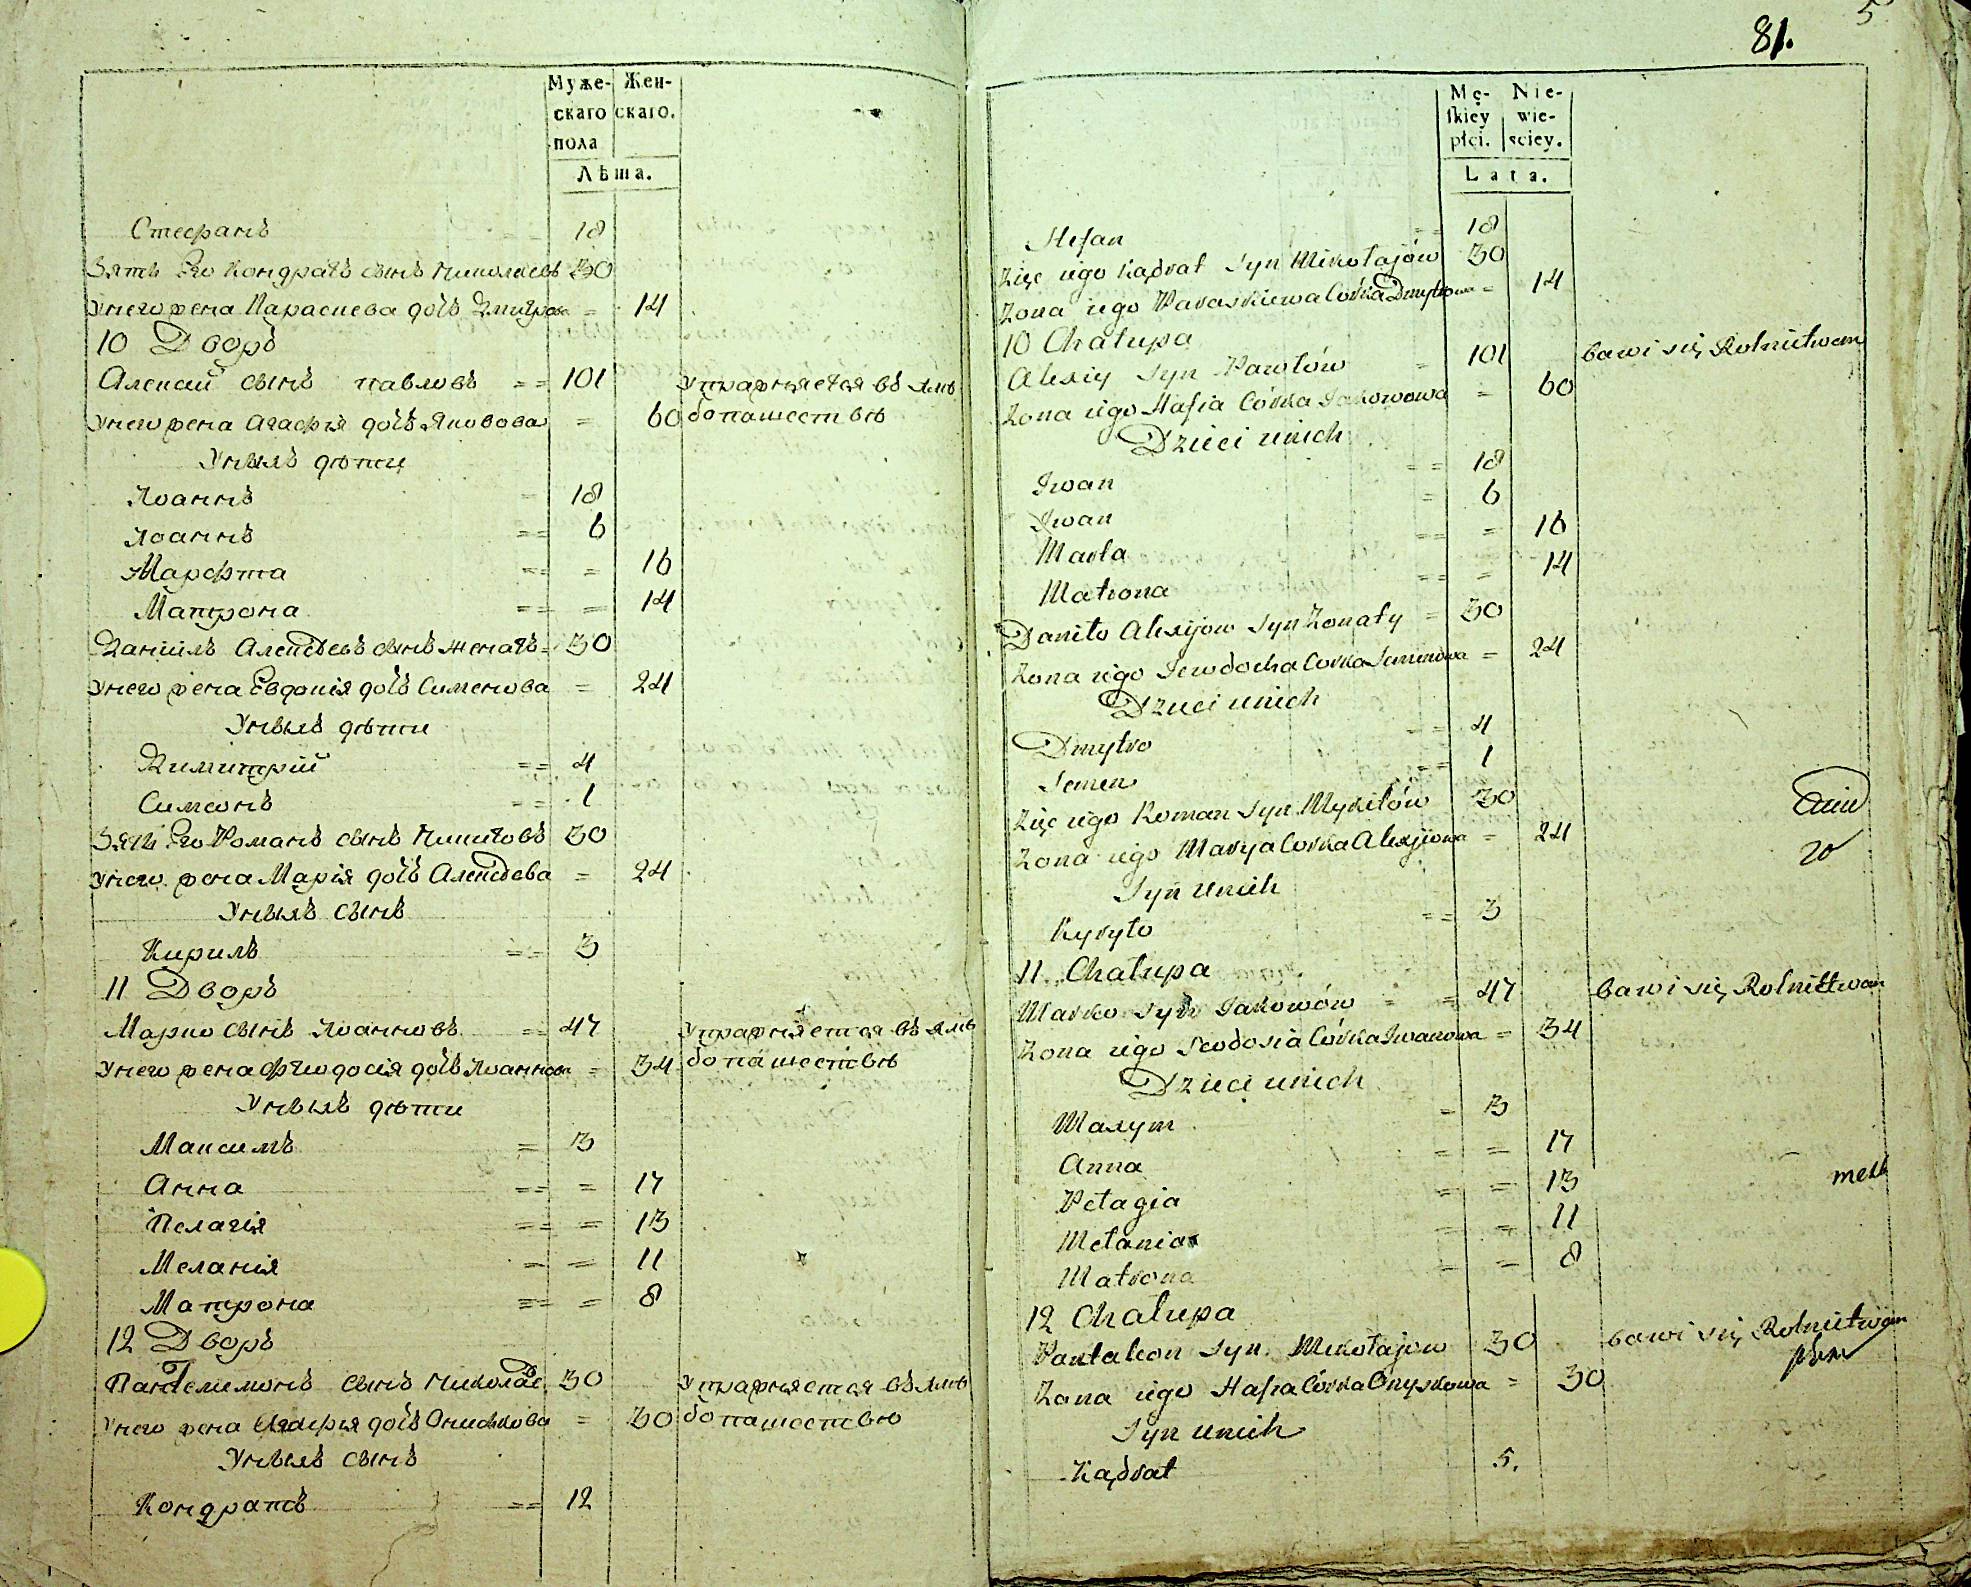 Муже-
скаго
пола
Жен-
скаго.
Лѣта.
Стефанъ == 18
Зять Его Кондратъ сынъ Николаевъ 30
Унего жена Параскева дочь Дмитрова = 14
10 Дворъ
Алексий сынъ павловъ == 101 Упражняется въ хлѣ
Унего жена Агафія дочь Яковова = 60 бопашествѣ
Унихъ дѣти
Иоаннъ 18
Иоаннъ == 6
Марфта == = 16
Матрона == = 14
Даніилъ Алексѣевъ сынъ женатъ = 30
Унего жена Евдокія дочь Сименова = 24
Унихъ дѣти
Димитрій == 4
Симеонъ == 1
Зять Его Романъ сынъ Никитовъ 30
Унего жена Марія дочь Алексѣева = 24
Унихъ сынъ
Кирилъ == 3
11 Дворъ
Марко сынъ Иоанновъ == 47 Упражняется въ хлѣ
Унего жена Феодосія дочь Иоаннова = 34 бопашествѣ
Унихъ дѣти
Максимъ = 3
Анна == = 17
Пелагія == = 13
Меланія == = 11
Матрона == = 8
12 Дворъ
Пантелимонъ сынъ Николаев 30 Упражняется въ хлѣ
Унего жена Агафія дочь Онискова = 30 бопашествѣ
Унихъ сынъ
Кондратъ == 12
81.
5
Mę-
skiey
płci.
Nie-
wie-
sciey.
Lata.
Stefan == 18
Zięc iego Kądrat Syn Mikołajów 30
Zona iego Paraskiewa Córka Dmytrowa = 14
10 Chałupa
Alexiy Syn Pawłów = 101 bawi się Rolnictwem
Zona iego Hafia Córka Jakowowa = 60
Dzieci unich
Iwan == 18
Iwan = 6
Marta == = 16
Matrona == = 14
Daniło Alexijow Syn Zonaty = 30
Zona iego Jewdocha Corka Semenowa = 24
Dzieci unich
Dmytro == 4
Semen == 1
Zięc iego Roman Syn Mykitów 30
Zona iego Marya Corka Alexjiowa = 24
Syn unich
Kyryło == 3
11. Chałupa
Marko Syn Jakowów = = 47 bawi się Rolnictwem
Zona iego Feodosia Córka Iwanowa = 34
Dzieci unich
Maxym = 3
Anna = = 17
Pełagia = = 13
Mełania = = 11
Matrona = = 8
12 Chałupa
Pantaleon Syn Mikołajow 30 bawi się Rolnictwem
Zona iego Hafia Córka Onyskowa = 30
Syn unich
Kądrat 5.